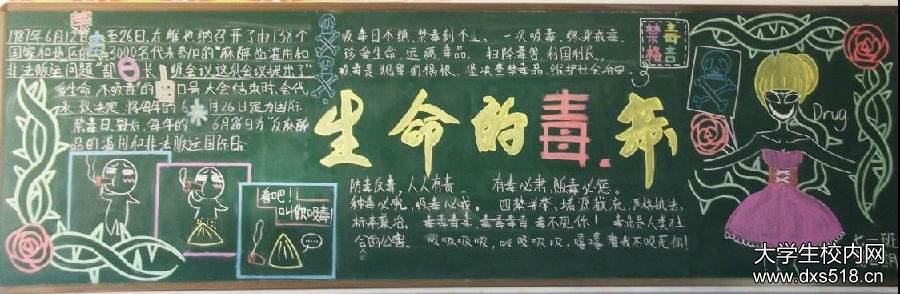 禁毒日由来
1987年6月12日至26日,在维也纳召开了由138个
国家和地区的3000名代表参加的“麻醉品滥用和
非法贩运问题”部长级会议这次会议提出了“
爱生命 不吸毒的口号大会结束时,会代
表 致决定 将每年的6月26日定为国际
禁毒日最后,每年的6月26日为“反麻醉
品的滥用和非法贩运国际日
吸毒日不绝,禁毒刻不止。一次吸毒,终身戒毒
珍爱生命 远离毒品。 扫除毒害,利国利民。
吸毒是犯罪的祸根。坚决查禁毒品,维护社会治安
禁毒格言
生命的毒.药
防毒反毒,人人有责。 有毒必肃,贩毒必惩。
种毒必究,吸毒必戒。 四禁并举,堵源截流,严格执法,
标本兼治。 毒不见你! 毒品是人类社
会的公害 吸吸吸吸,
看吧!
叫你吸毒!
Drug
班
大学生校内网
www.dxs518.cn